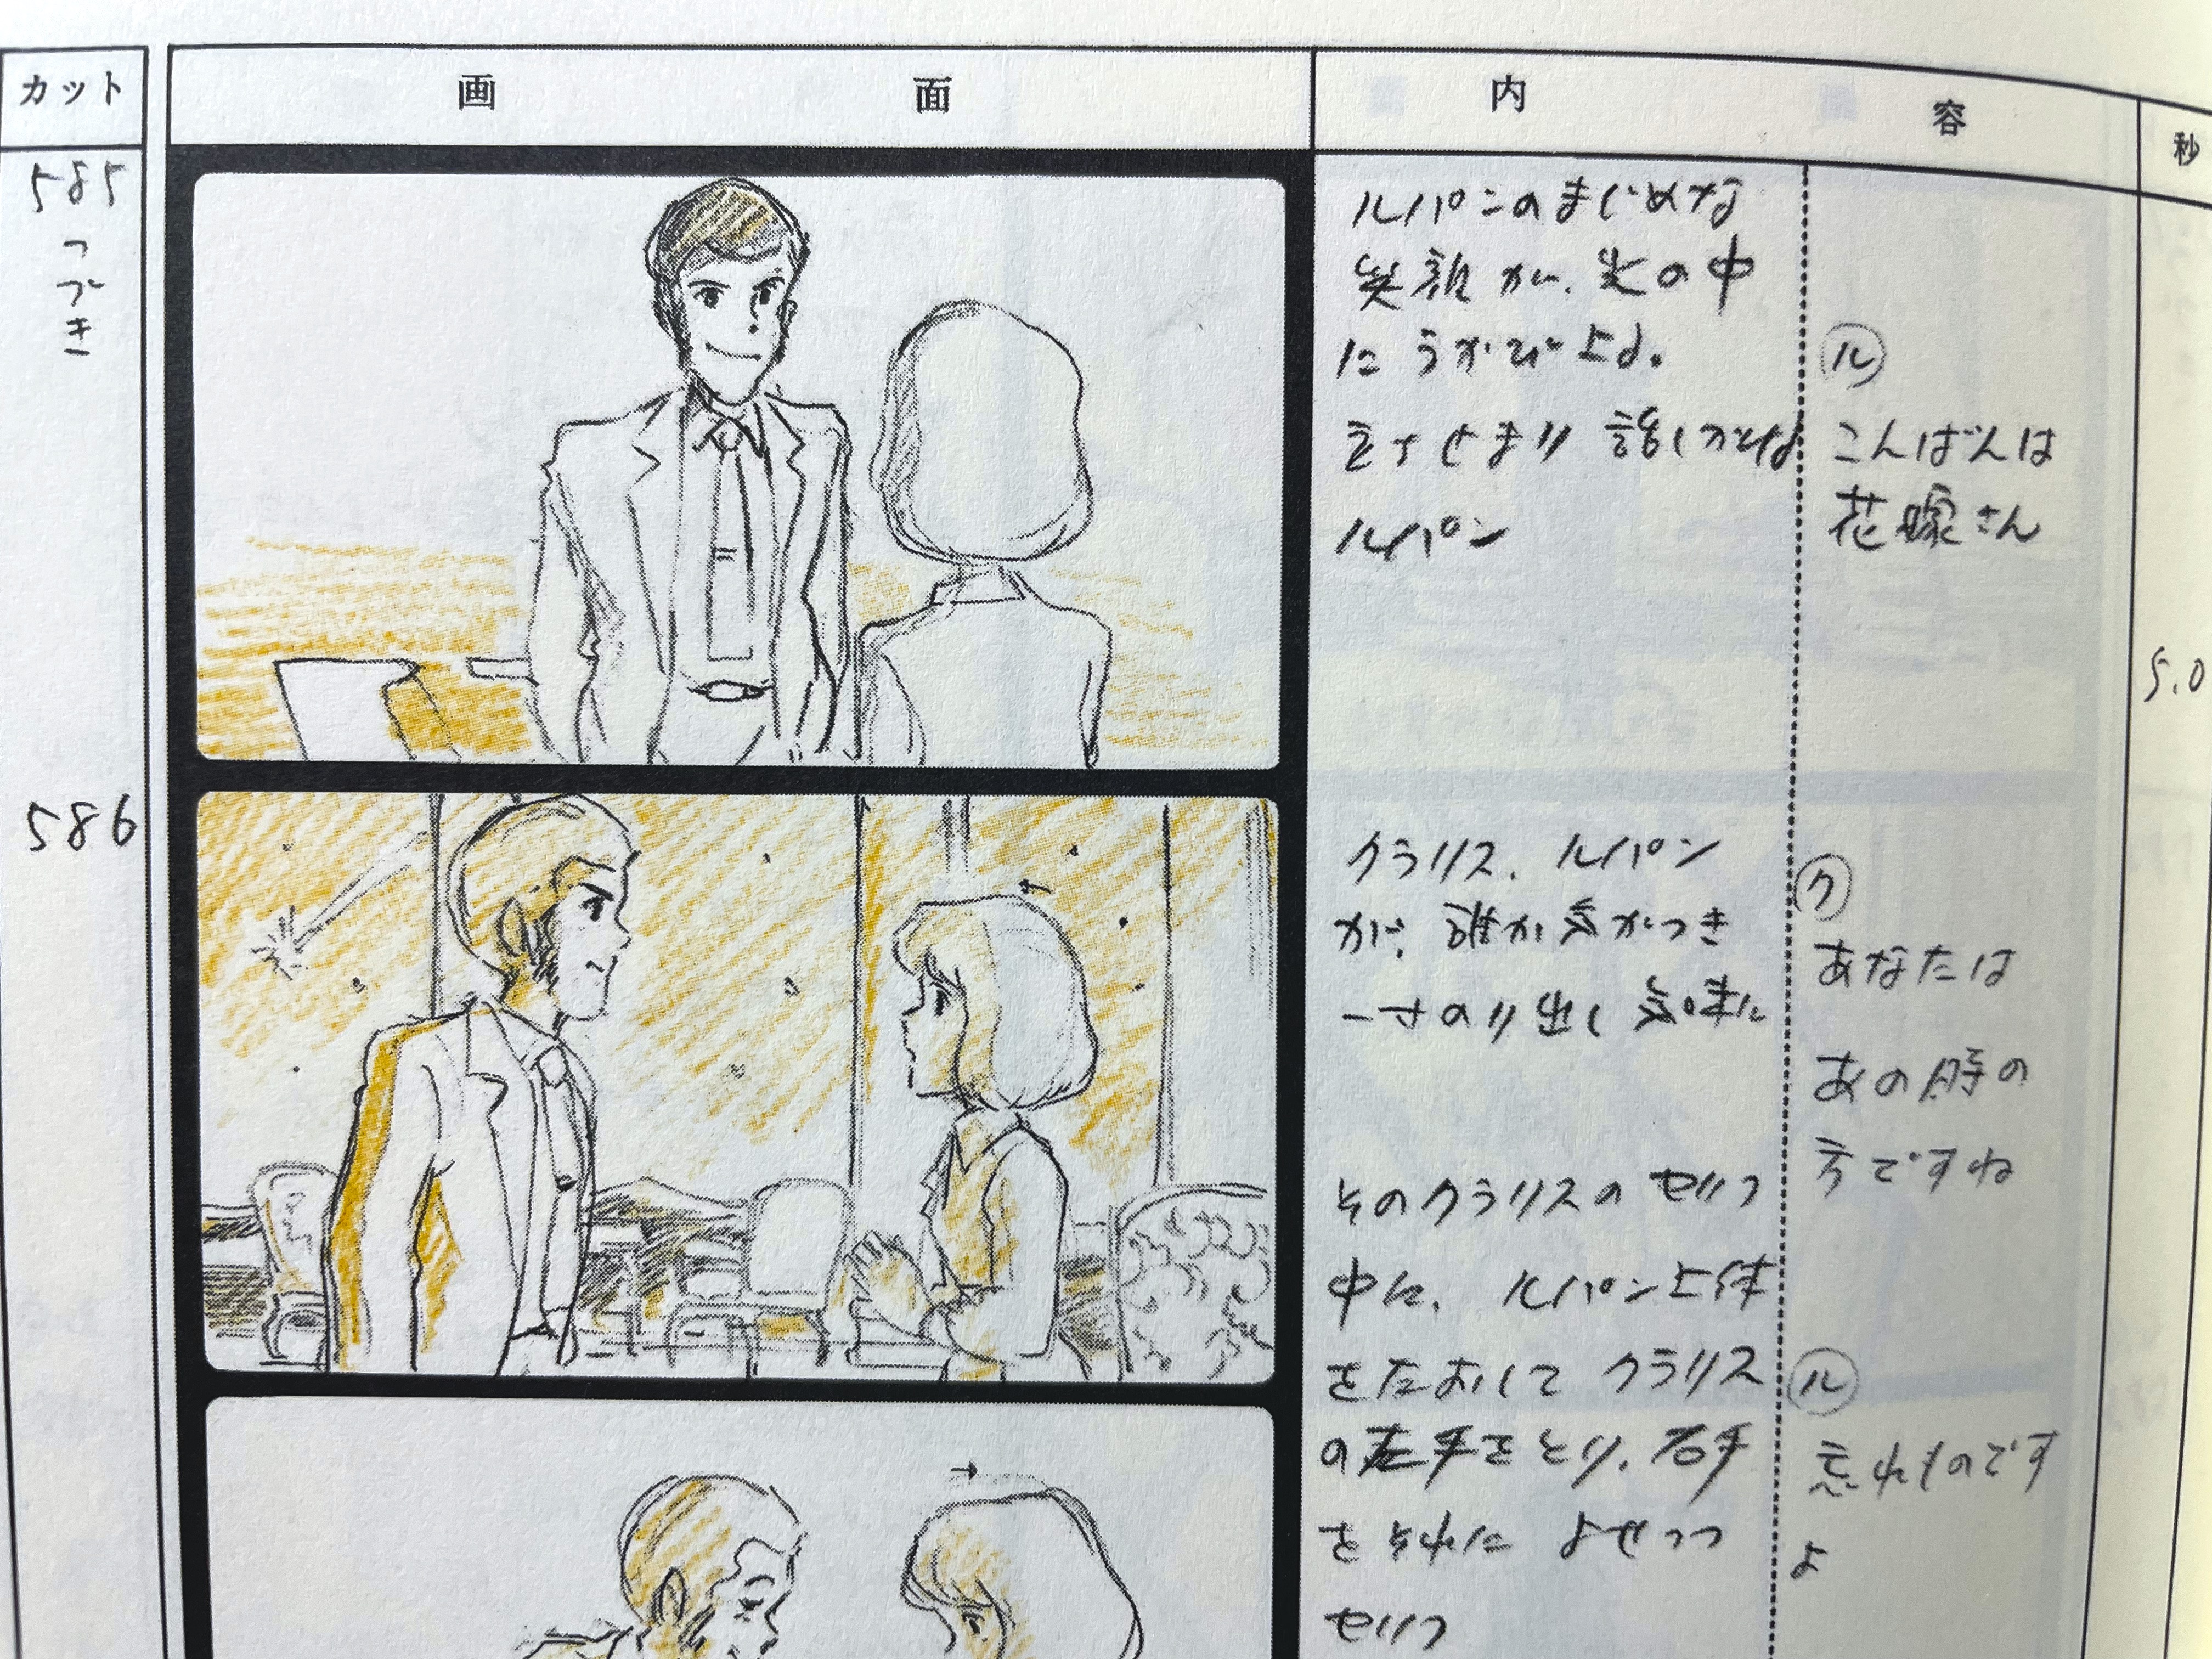 カット
画面
内容
秒
585
つづき
ルパンのまじめな
笑顔が、光の中
にうかび上る。
立ちどまり 話しかける
ルパン
ル
こんばんは
花嫁さん
5.0
586
クラリス、ルパン
が、誰か気がつき
一寸のり出し気味に
ク
あなたは
あの時の
方ですね
そのクラリスのセリフ
中に、ルパン上体
をたおしてクラリス
の左手をとり、右手
をそれに よせつつ
セリフ
ル
忘れものです
よ